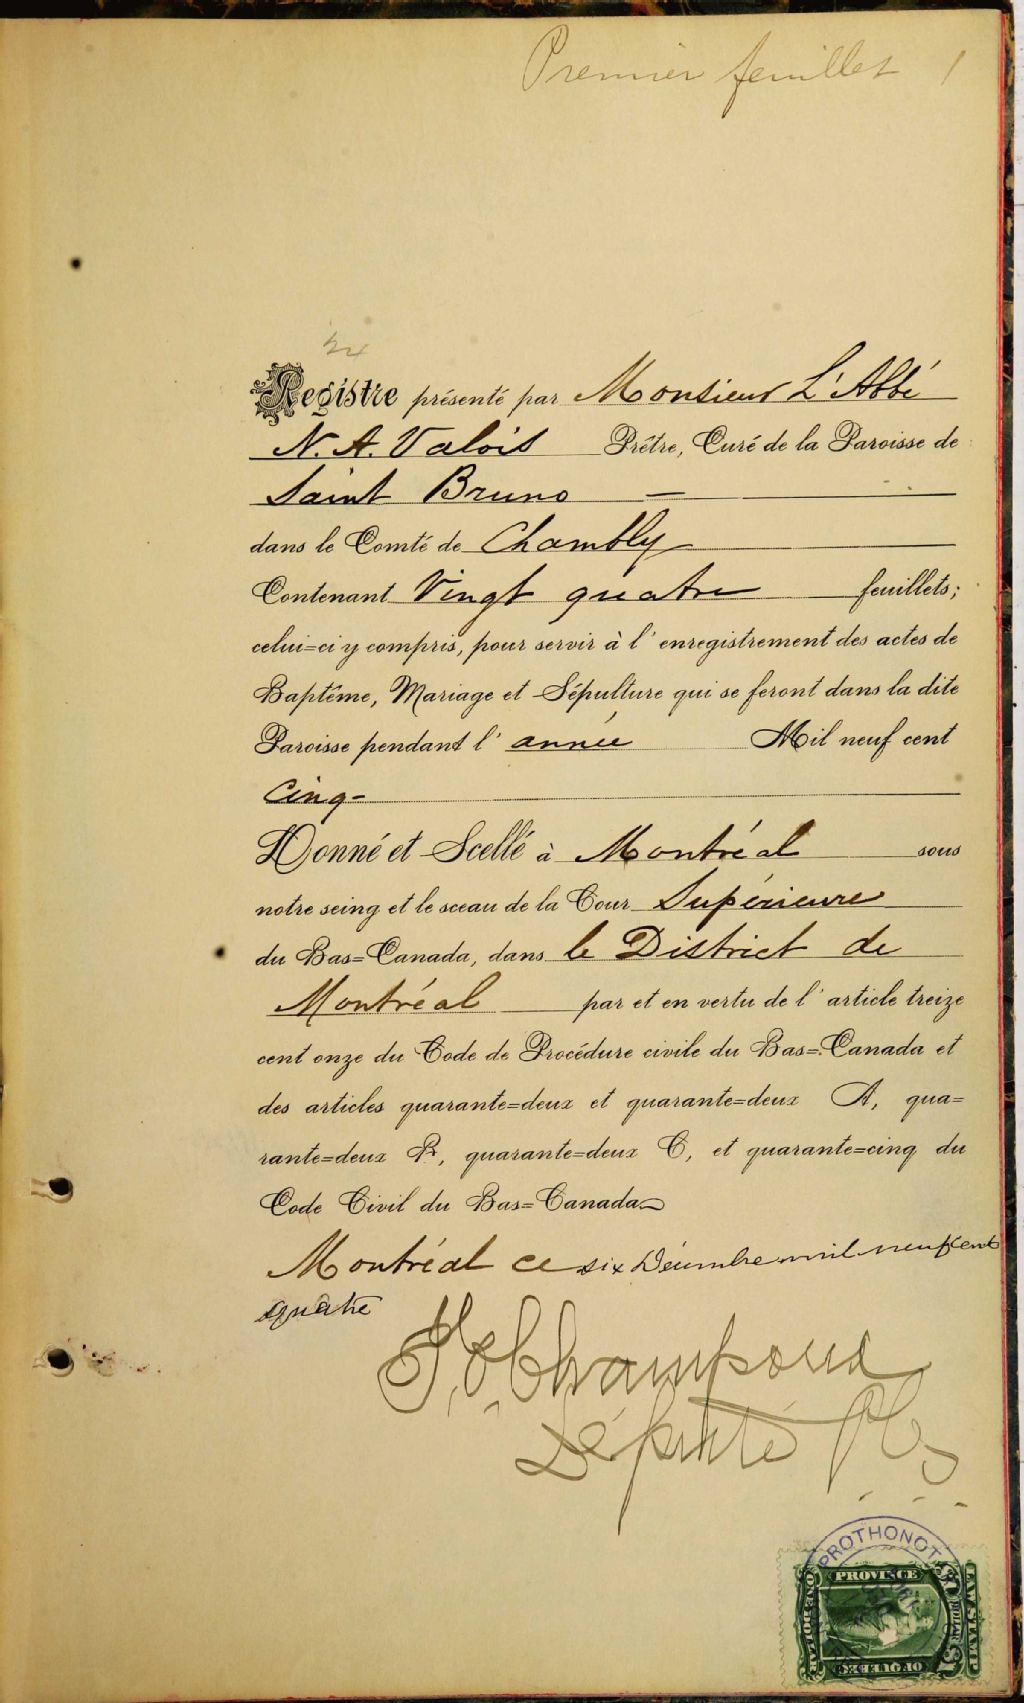 Premier feuillet 1
24
Registre présenté par Monsieur L'Abbé
N. A. Valois Prêtre, Curé de la Paroisse de
Saint Bruno —
dans le Comté de Chambly
Contenant Vingt quatre feuillets;
celui=ci y compris, pour servir à l'enregistrement des actes de
Baptême, Mariage et Sépulture qui se feront dans la dite
Paroisse pendant l'année Mil neuf cent
Cinq-
Donné et Scellé à Montréal sous
notre seing et le sceau de la Cour Supérieure
du Bas=Canada, dans le District de
Montréal par et en vertu de l'article treize
cent onze du Code de Procédure civile du Bas=Canada et
des articles quarante=deux et quarante=deux A, qua=
rante=deux B, quarante=deux C, et quarante=cinq du
Code Civil du Bas=Canada
Montréal ce six Décembre mil neuf cent
quatre
Champoux
Député
PROTHONOT
PROVINCE
LAW STAMP
ONE DOLLAR